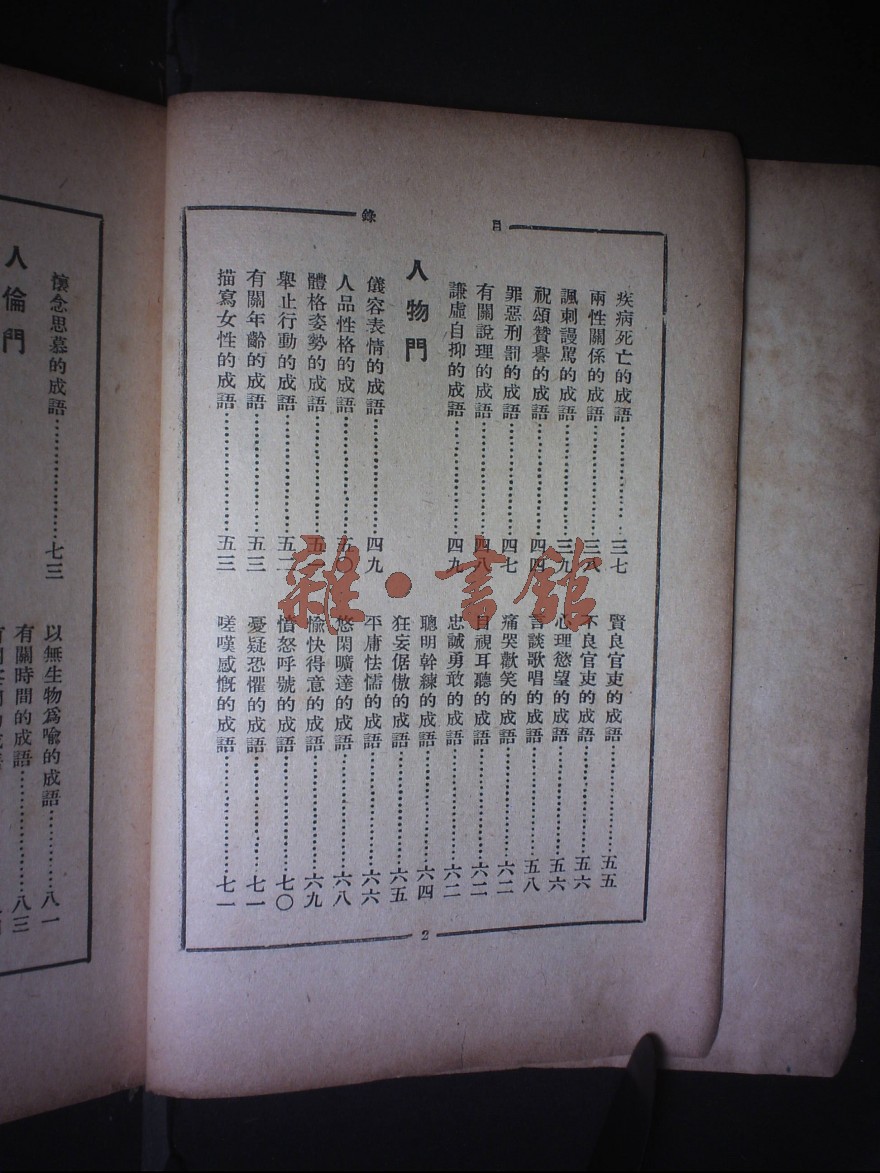 目錄
疾病死亡的成語…………三七
兩性關係的成語…………三八
諷刺謾駡的成語…………三九
祝頌贊譽的成語…………四四
罪惡刑罰的成語…………四七
有關說理的成語…………四八
謙虛自抑的成語…………四九
人物門
儀容表情的成語…………四九
人品性格的成語…………五〇
體格姿勢的成語…………五一
舉止行動的成語…………五二
有關年齡的成語…………五三
描寫女性的成語…………五三
賢良官吏的成語…………五五
不良官吏的成語…………五六
心理慾望的成語…………五六
言談歌唱的成語…………五八
痛哭歡笑的成語…………六二
目視耳聽的成語…………六二
忠誠勇敢的成語…………六二
聰明幹練的成語…………六四
狂妄倨傲的成語…………六五
平庸怯懦的成語…………六六
悠閑曠達的成語…………六八
愉快得意的成語…………六九
憤怒呼號的成語…………七〇
憂疑恐懼的成語…………七一
嗟嘆感慨的成語…………七一
2
懷念思慕的成語…………七三
人倫門
以無生物爲喻的成語…………八一
有關時間的成語…………八三
雜·書館